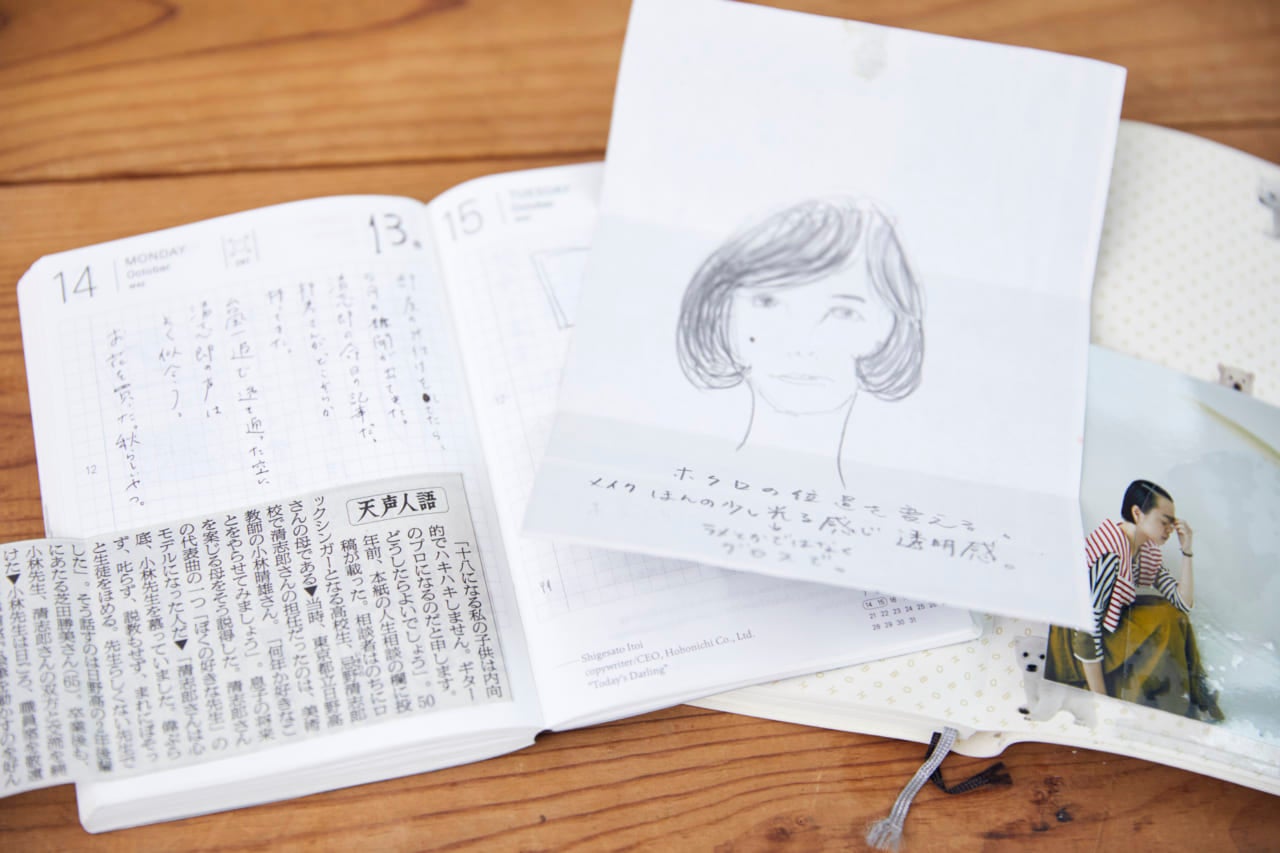 14
MONDAY
October
13.
清志郎の今日の記事だ。
台風一過で透き通った空に
清志郎の声は
よく似合う。
お花を買った。秋らしいやつ。
12
天声人語
「十八になる私の子供は内向
的でハキハキしません。ギター
のプロになるのだと申します。
どうしたらよいでしょう」。50
年前、本紙の人生相談の欄に投
稿が載った。相談者はのちにロ
ックシンガーとなる高校生、忌野清志郎
さんの母である▼当時、東京都立日野高
校で清志郎さんの担任だったのは、美術
教師の小林晴雄さん。「何年か好きなこ
とをやらせてみましょう」。息子の将来
を案じる母をそう説得した。清志郎さん
の代表曲の一つ「ぼくの好きな先生」の
モデルになった人だ▼「清志郎さんは心
底、小林先生を慕っていました。偉ぶら
ず、叱らず、説教もせず、まれにぼそっ
と生徒をほめる。先生らしくない先生で
した」。そう話すのは日野高の2年後輩
にあたる芝田勝美さん(66)。卒業後も、
小林先生、清志郎さんの双方と交流を続
けた▼小林先生は日ごろ、職員室を敬遠
15
TUESDAY
October
Shigesato Itoi
copywriter/CEO, Hobonichi Co., Ltd.
"Today's Darling"
14 15 16
21 22 23 24 25 26 27
28 29 30 31
ホクロの位置を変える。
メイク ほんの少し光る感じ 透明感。
↓
ラメとかではなく
グロスで。